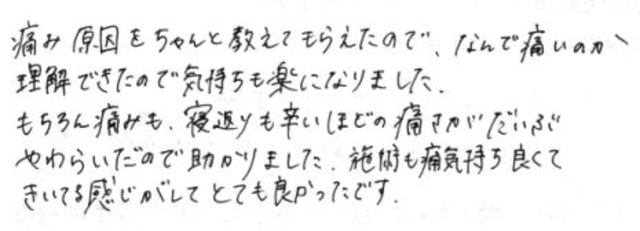 痛み原因をちゃんと教えてもらえたので、なんで痛いのか
理解できたので気持ちも楽になりました.
もちろん痛みも、寝返りも辛いほどの痛さがだいぶ
やわらいだので助かりました. 施術も痛気持ち良くて
きいてる感じがしてとても良かったです.